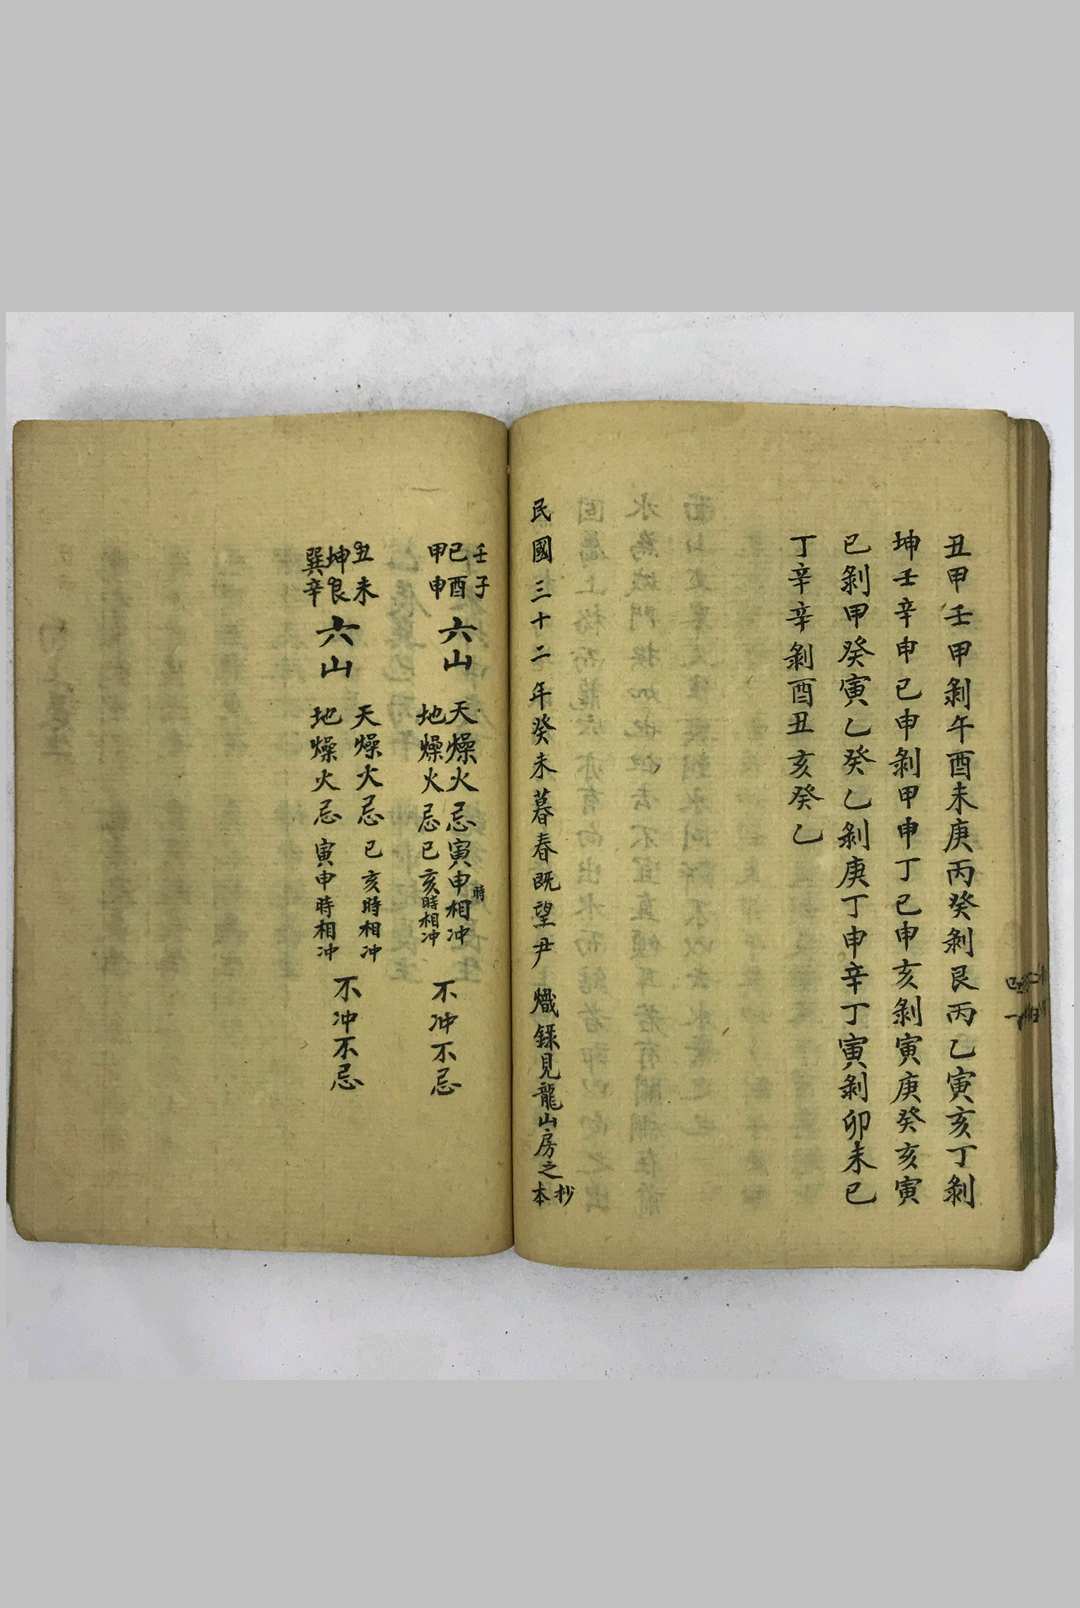 丑甲壬甲剝午酉未庚丙癸剝艮丙乙寅亥丁剝
坤壬辛申巳申剝甲申丁巳申亥剝寅庚癸亥寅
巳剝甲癸寅乙癸乙剝庚丁申辛丁寅剝卯未巳
丁辛辛剝酉丑亥癸乙
民國三十二年癸未暮春既望尹熾錄見龍山房之抄本
壬子
巳酉
甲申
六山
天燥火忌寅申時相冲
地燥火忌巳亥時相冲
不冲不忌
丑未
坤艮
巽辛
六山
天燥火忌巳亥時相冲
地燥火忌寅申時相冲
不冲不忌